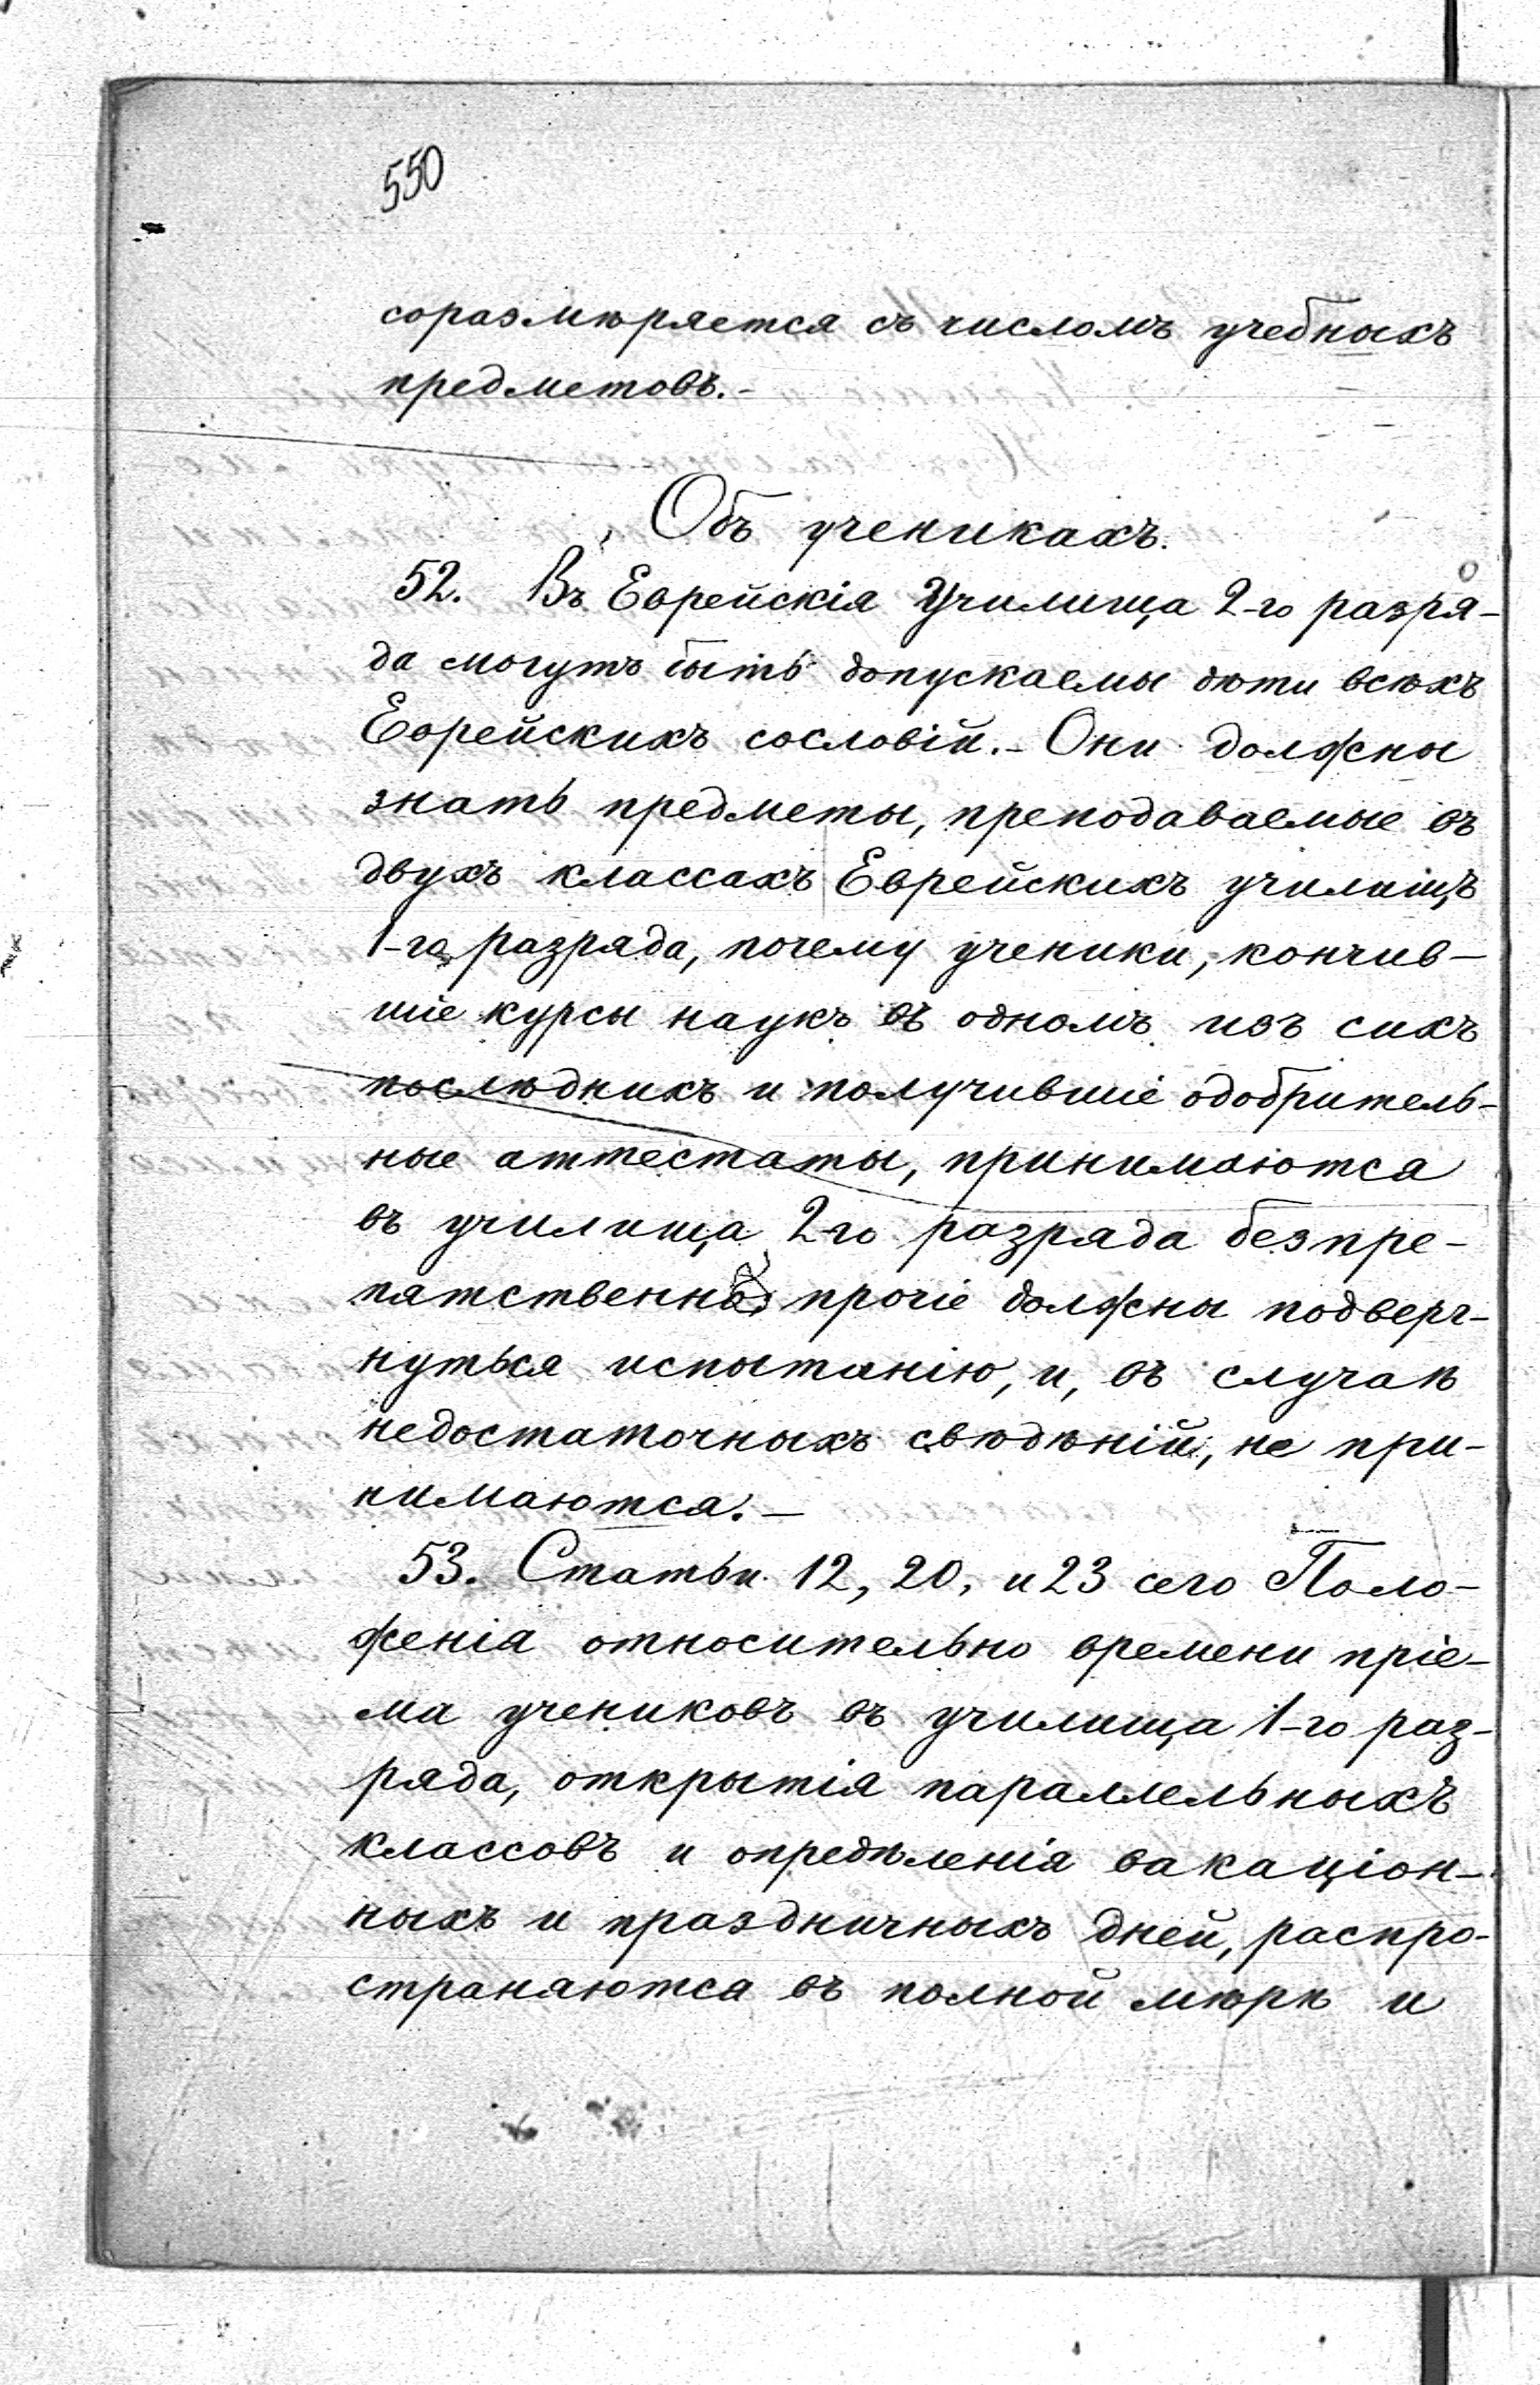 550
соразмѣряется съ числомъ учебныхъ
предметовъ.-
Объ ученикахъ.
52. Въ Еврейскія Училища 2-го разря-
да могутъ быть допускаемы дѣти всѣхъ
Еврейскихъ сословій.- Они должны
знать предметы, преподаваемые въ
двухъ классахъ Еврейскихъ училищъ
1-го разряда, почему ученики, кончив-
шіе курсы наукъ въ одномъ изъ сихъ
послѣднихъ и получившіе одобритель-
ные аттестаты, принимаются
въ училища 2-го разряда безпре-
пятственно; прочіе должны подверг-
нуться испытанію, и, въ случаѣ
недостаточныхъ свѣдѣній, не при-
нимаются.-
53. Статьи 12, 20, и 23 сего Поло-
женія относительно времени пріе-
ма учениковъ въ училища 1-го раз-
ряда, открытія параллельныхъ
классовъ и опредѣленія вакаціон-
ныхъ и праздничныхъ дней, распро-
страняются въ полной мѣрѣ и